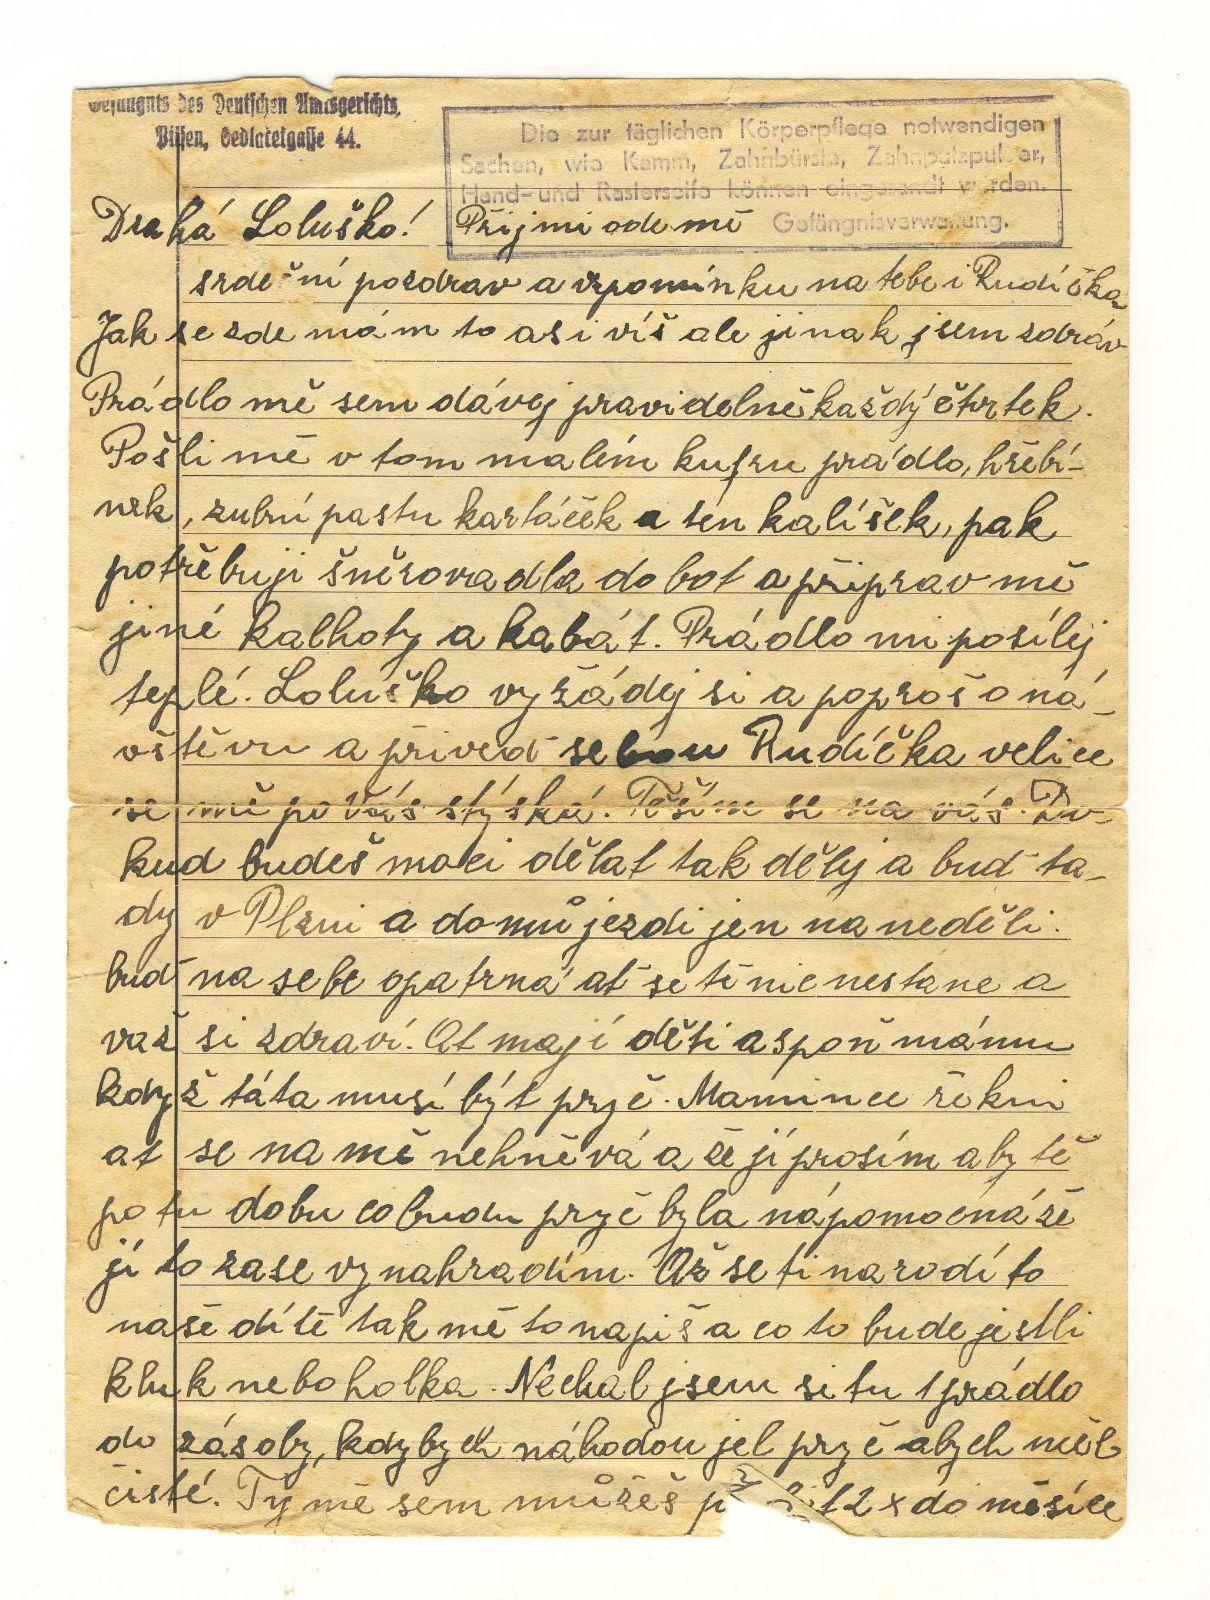 Gefängnis des Deutschen Amtsgerichts,
Pilsen,
Die zur täglichen Körperpflege notwendigen
Sachen, wie Kamm, Zahnbürste, Zahnputzpulver,
Hand- und Rasierseife können eingesandt werden.
Gefängnisverwaltung.
Drahá Loluško! Přijmi ode mě
srdeční pozdrav a vzpomínku na tebe i Rudíčka
Jak se zde mám to asi víš ale jinak jsem zdráv
Prádlo mě sem dávej pravidelně každý čtvrtek.
Pošli mě v tom malém kufru prádlo, hřebí-
nek, zubní pastu kartáček a ten kalíšek, pak
potřebuji šněrovadla do bot a připrav mě
jiné kalhoty a kabát. Prádlo mi posílej
teplé. Loluško vyžádej si a popros o ná-
vštěvu a přiveď sebou Rudíčka velice
se mě po Vás stýská. Těším se na vás.
kud budeš moci dělat tak dělej a buď ta-
dy v Plzni a domů jezdi jen na neděli.
buď na sebe opatrná ať se ti nic nestane a
važ si zdraví. At mají děti aspoň mámu
když táta musí být pryč. Mamince řekni
at se na mě nehněvá a že jí prosím aby tě
po tu dobu co budu pryč byla nápomocná že
jí to zase vynahradím. Až se ti narodí to
naše dítě tak mě to napiš a co to bude jestli
kluk nebo holka. Nechal jsem si tu 1 prádlo
do zásoby, kdybych náhodou jel pryč abych měl
čisté. Ty mě sem můžeš 2x do měsíce